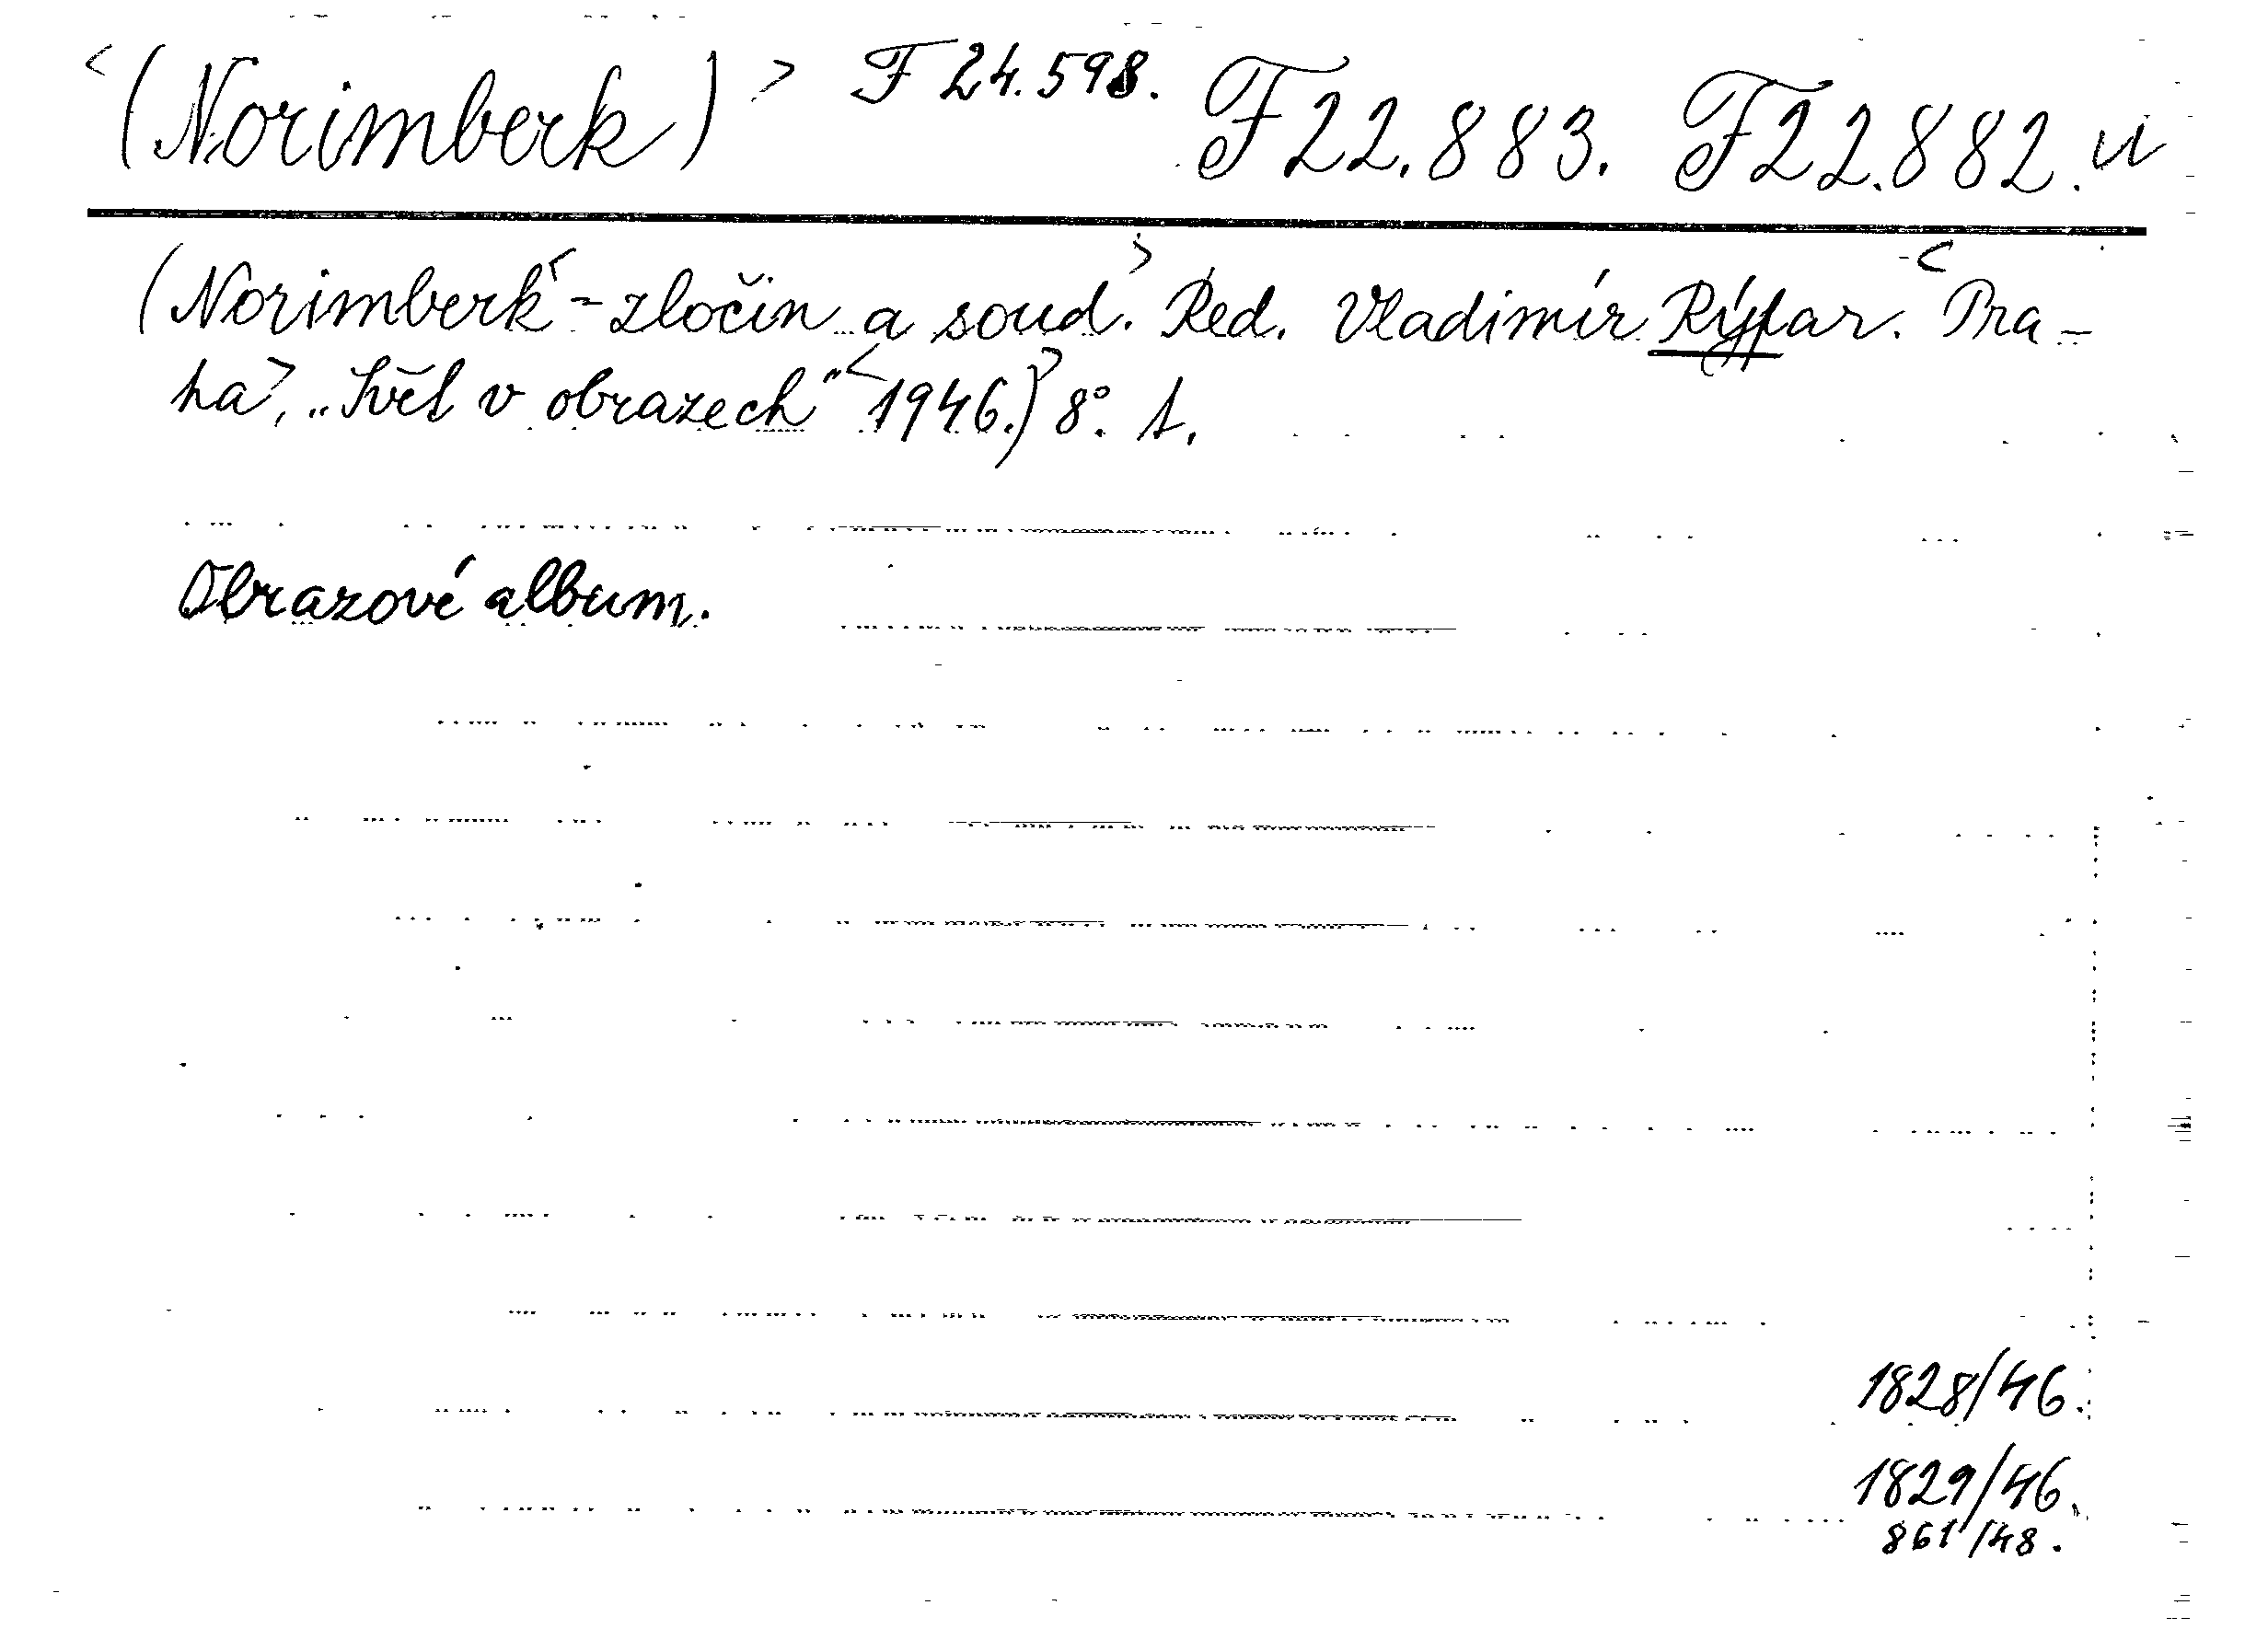 <(Norimberk)> F 24.598. F 22.883. F 22.882. u
(Norimberk<-zločin a soud.> Red. Vladimír Rýpar. <Pra-
ha>, „Svět v obrazech" <1946.)> 8°. 1.
Obrazové album.
1828/46.
1829/46.
861/48.